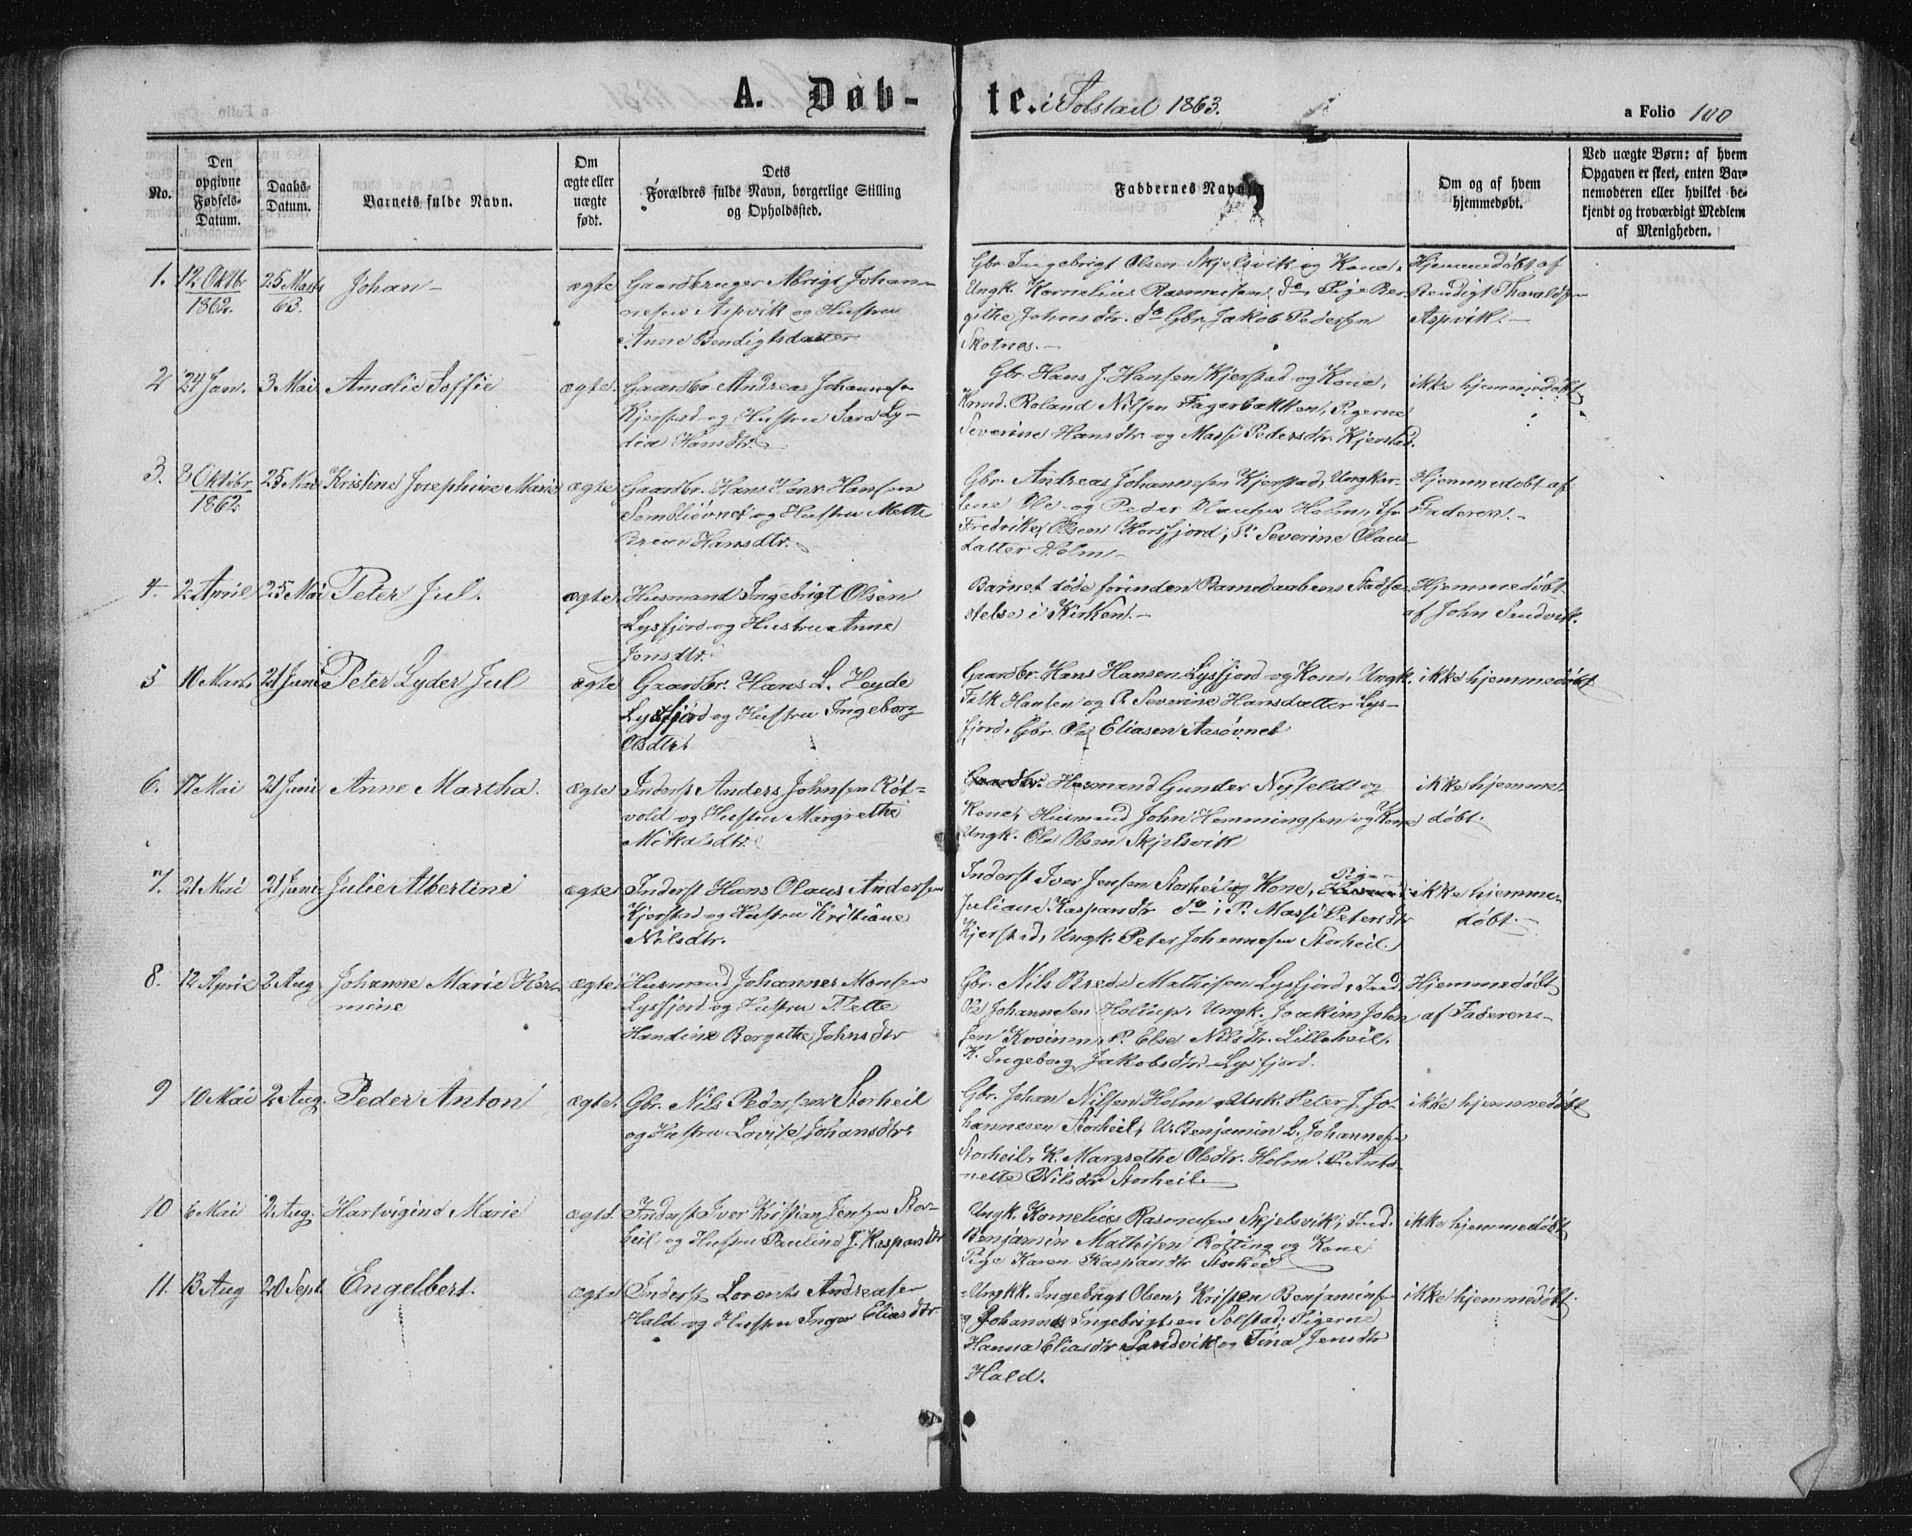 A. Døb-te. i Solstad 1863.
a Folio 100
No.
Den opgivne Fødsels-Datum.
Daabs-Datum.
Barnets fulde Navn.
Om ægte eller uægte født.
Dets Forældres fulde Navn, borgerlige Stilling og Opholdssted.
Faddernes Navn
Om og af hvem hjemmedøbt.
Ved uægte Børn: af hvem Opgaven er skeet, enten Barnemoderen eller hvilket bekjendt og troværdigt Medlem af Menigheden.
1. 12 Oktbr 1862. 25 Marts 63. Johan- ægte
Gaardbruger Abrigt Johan-
nesen Aspvik og Hustru
Anne Bendigtsdatter
Gbr. Ingebrigt Olsen Skjelsvik og Kone,
Ungk. Kornelius Rasmusen do, Pige Ber-
gitte Johnsdtr. do Gbr. Jakob Pedersen
Skotnes.-
Hjemmedøbt af
Bendigt Tharaldsen
Aspvik.-
2 24 Jan. 3 Mai Amalie Soffie ægte.
Gaardbr. Andreas Johannesen
Kjerstad og Hustru Sara Ly-
dia Hansdtr.
Gbr. Hans J. Hansen Kjerstad og Kone,
Roland Nilsen Fagerbakken, Pigerne
Severine Hansdtr og Massi Pedersdtr. Kjerstad.
ikke hjemmedøbt
3. 8 Oktbr 1862 25 Mai Kristine Josephine Marie ægte
Gaardbr. Hans Hansen
og Hustru Mette
Hansdtr.
Gbr. Andreas Johannesen Kjerstad, Ungkar-
lene Ole og Peder Holm,
Fredrike Olsen Korsfjord, P. Severine Olaus
datter Holm-
Hjemmedøbt af
Faderen.-
4. 2 April 25 Mai Peter Jul. ægte
Husmand Ingebrigt Olsen
Lysfjord og Hustru Anne
Jensdtr.
Barnet døde forinden Barnedaabens Stadfæ-
stelse i Kirken.-
Hjemmedøbt
af John Sundvik.
5 10 Marts 21 Juni Peter Lyder Jul ægte
Gaardbr. Hans L. Heyde
Lysfjord og Hustru Ingeborg
Olsdtr.
Gaardbr. Hans Hansen Lysfjord og Kone, Ungk.
Falk Hansen og P. Severine Hansdatter Lys-
fjord, Gbr. Ole Eliasen Aasøvnet
ikke hjemmedøbt
6. 17 Mai 21 Juni Anne Martha. ægte
Inderst Anders Johnsen Røt-
vold og Hustru Margrethe
Mikalsdtr.
Gaardbr. Husmand Gunder Nyfeldt og
Kone, Husmand John Hemmingsen og Kone
Ungk. Ole Olsen Skjelsvik
ikke hjemme-
døbt.
7. 21 Mai 21 Juni Julie Albertine ægte
Inderst Hans Olaus Andersen
Kjerstad og Hustru Kristiane
Nilsdtr.
Inderst Iver Jensen Storheil og Kone, Pige
Juliane Kaspansdtr do, P. Massi Petersdtr
Kjerstad, Ungk. Peter Johannesen Storheil.
ikke hjemme-
døbt.-
8. 12 April 2 Aug Johanne Marie Her-
mine ægte
Husmand Johannes Monsen
Lysfjord og Hustru
Handine Bergithe Johnsdtr
Gbr. Nils Brede Mathisen Lysfjord, Ind.
Ole Johannesen Holtup, Ungk. Joakim John-
sen P. Else Nilsdtr. Lilleheil,
K. Ingeborg Jakobsdtr. Lysfjord.
Hjemmedøbt
af Faderen-
9 10 Mai 2 Aug. Peder Anton ægte.
Gbr. Nils Pedersen Storheil
og Hustru Lovise Johansdtr.
Gbr. Johan Nilsen Holm, Unk. Peter J. Jo-
hannesen Storheil, U. Benjamin L. Johannes-
Storheil, K. Margrethe Olsdtr. Holm. P. Anto-
nette Nilsdtr Storheil
ikke hjemmedøbt
10 6 Mai 2 Aug. Hartvigine Marie ægte
Inderst Iver Kristian Jensen Stor-
heil og Hustru Pauline J. Kaspansdtr
Ungk. Kornelius Rasmusen Skjelsvik, Ind.
Benjamin Mathisen Røtting og Kone
Pige Karen Kaspansdtr Storheil
ikke hjemmedøbt
11. 13 Aug 20 Sept. Engelbert. ægte
Inderst Lorents Andreasen
Hald og Hustru Inger Eliasdtr
Ungkk. Ingebrigt Olsen, Kristen Benjaminsen
og Johannes Ingebrigtsen Solstad; Pigerne
Hanna Eliasdtr Sandvik og Tina Jensdtr
Hald.
ikke hjemmedøbt.